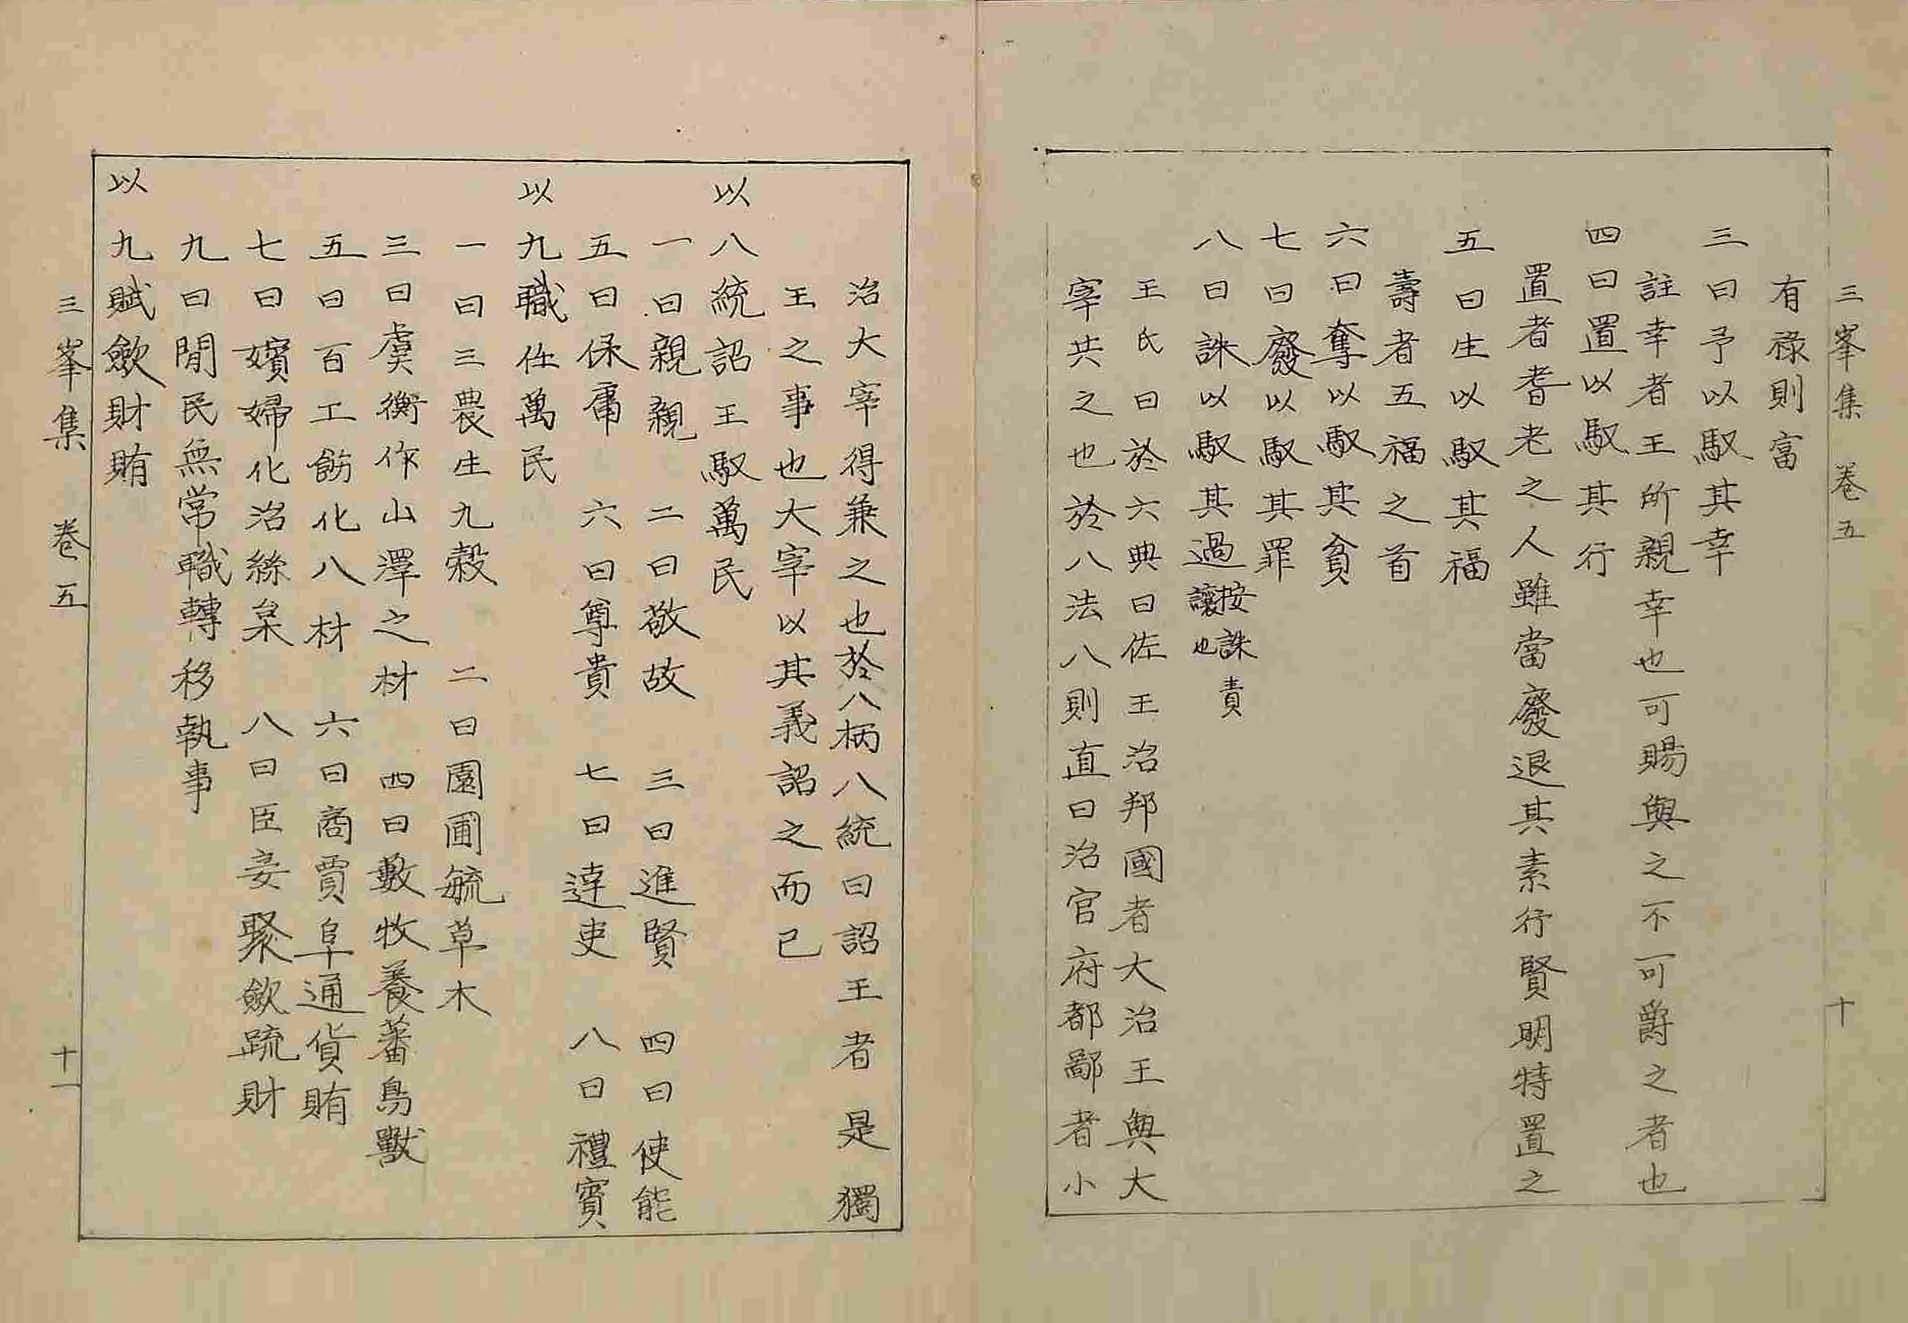 三峯集　卷五　十
有祿則富
三曰予以馭其幸
註幸者王所親幸也可賜與之不可爵之者也
四曰置以馭其行
置者耆老之人雖當廢退其素行賢明特置之
五曰生以馭其福
壽者五福之首
六曰奪以馭其貧
七曰廢以馭其罪
八曰誅以馭其過按誅責讓也
王氏曰於六典曰佐王治邦國者大治王與大
宰共之也於八法八則直曰治官府都鄙者小
治大宰得兼之也於八柄八統曰詔王者是獨
王之事也大宰以其義詔之而已
以八統詔王馭萬民
一曰親親　二曰敬故　三曰進賢　四曰使能
五曰保庸　六曰尊貴　七曰達吏　八曰禮賓
以九職任萬民
一曰三農生九穀　二曰園圃毓草木
三曰虞衡作山澤之材　四曰藪牧養蕃鳥獸
五曰百工飭化八材　六曰商賈阜通貨賄
七曰嬪婦化治絲枲　八曰臣妾聚斂疏財
九曰閒民無常職轉移執事
以九賦斂財賄
三峯集　卷五　十一